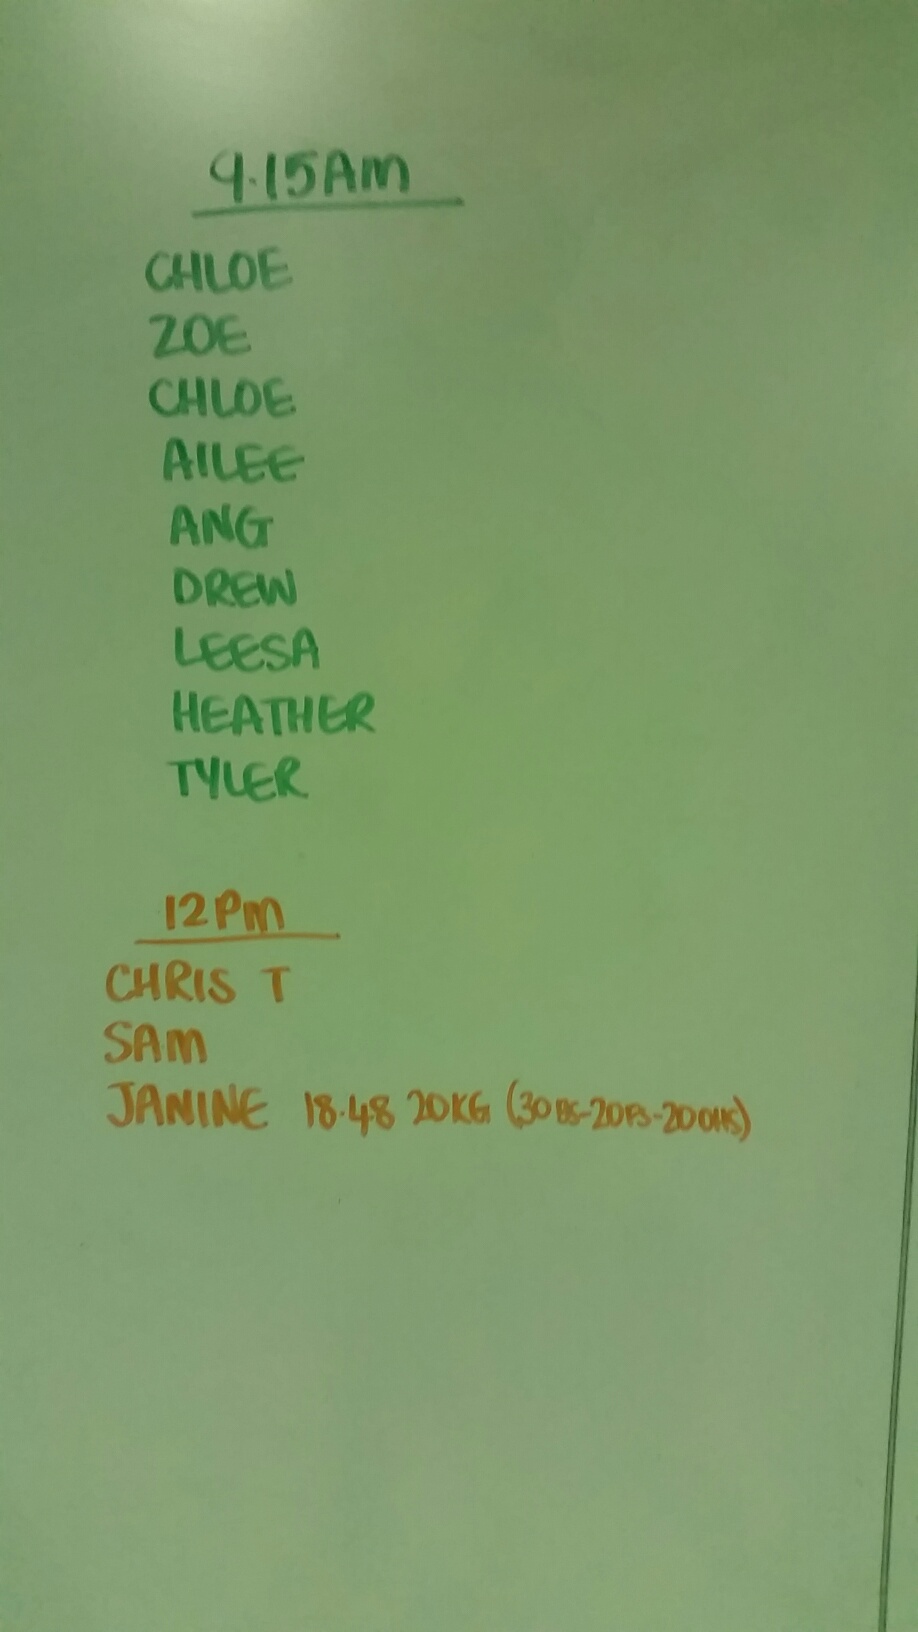 9.15AM
CHLOE
ZOE
CHLOE
AILEE
ANG
DREW
LEESA
HEATHER
TYLER
12PM
CHRIS T
SAM
JANINE 18.48 20KG (30BS-20FS-20OHS)